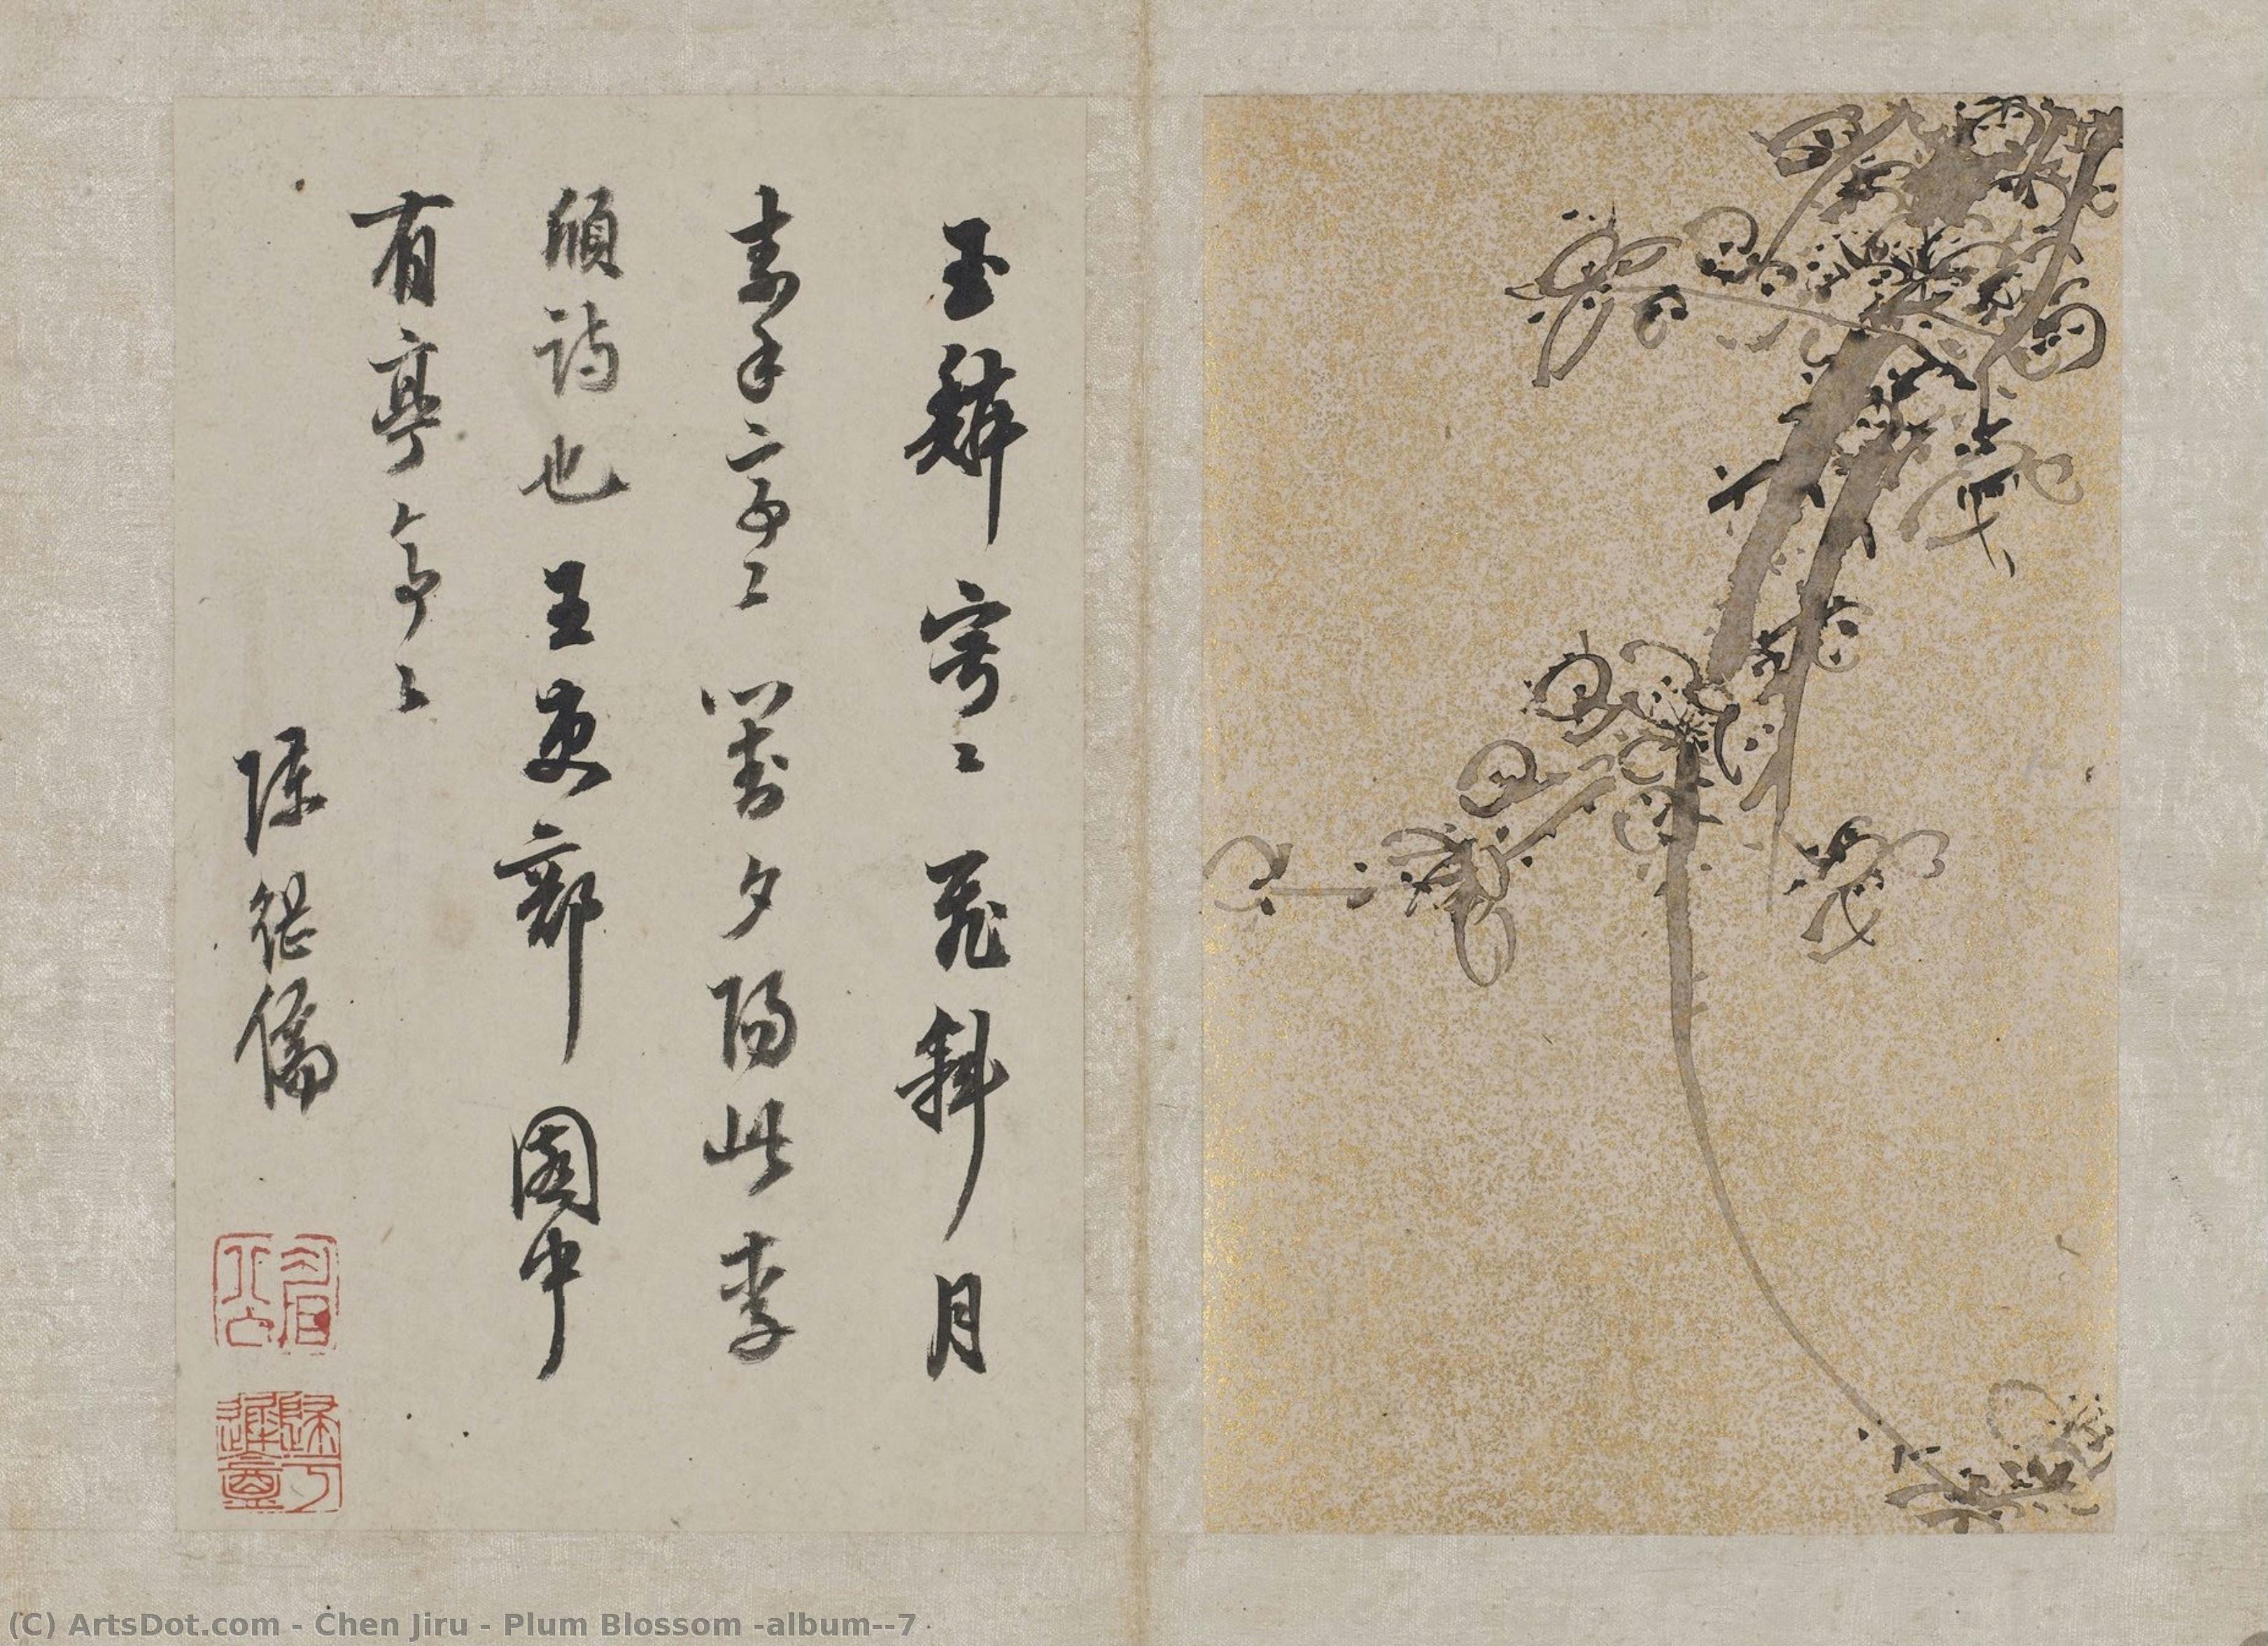 玉鱗寂〻飛斜月
素手亭〻對夕陽此李
頎詩也王吏部園中
有亭亭〻
陳繼儒
(C) ArtsDot.com - Chen Jiru - Plum Blossom -album--7